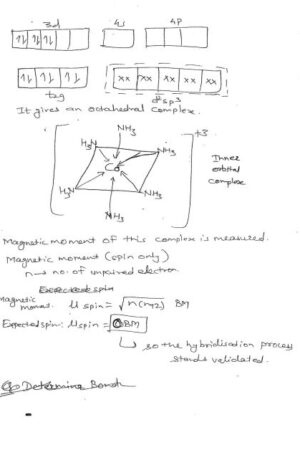 3d 4s 4p
↑↓ ↑↓ ↑↓
↑↓ ↑↓ ↑↓ xx xx xx xx xx
t2g d²sp³
It gives an octahedral complex.
+3
NH3
H3N NH3
Co
H3N NH3
NH3
Inner
orbital
complex
Magnetic moment of this complex is measured.
Magnetic moment (spin only)
n → no. of unpaired electron.
Expected spin
Magnetic moment. μ spin = √n(n+2) BM
Expected spin: μ spin = 0 BM
↳ so the hybridisation process
stands validated.
Q) Determine Bond